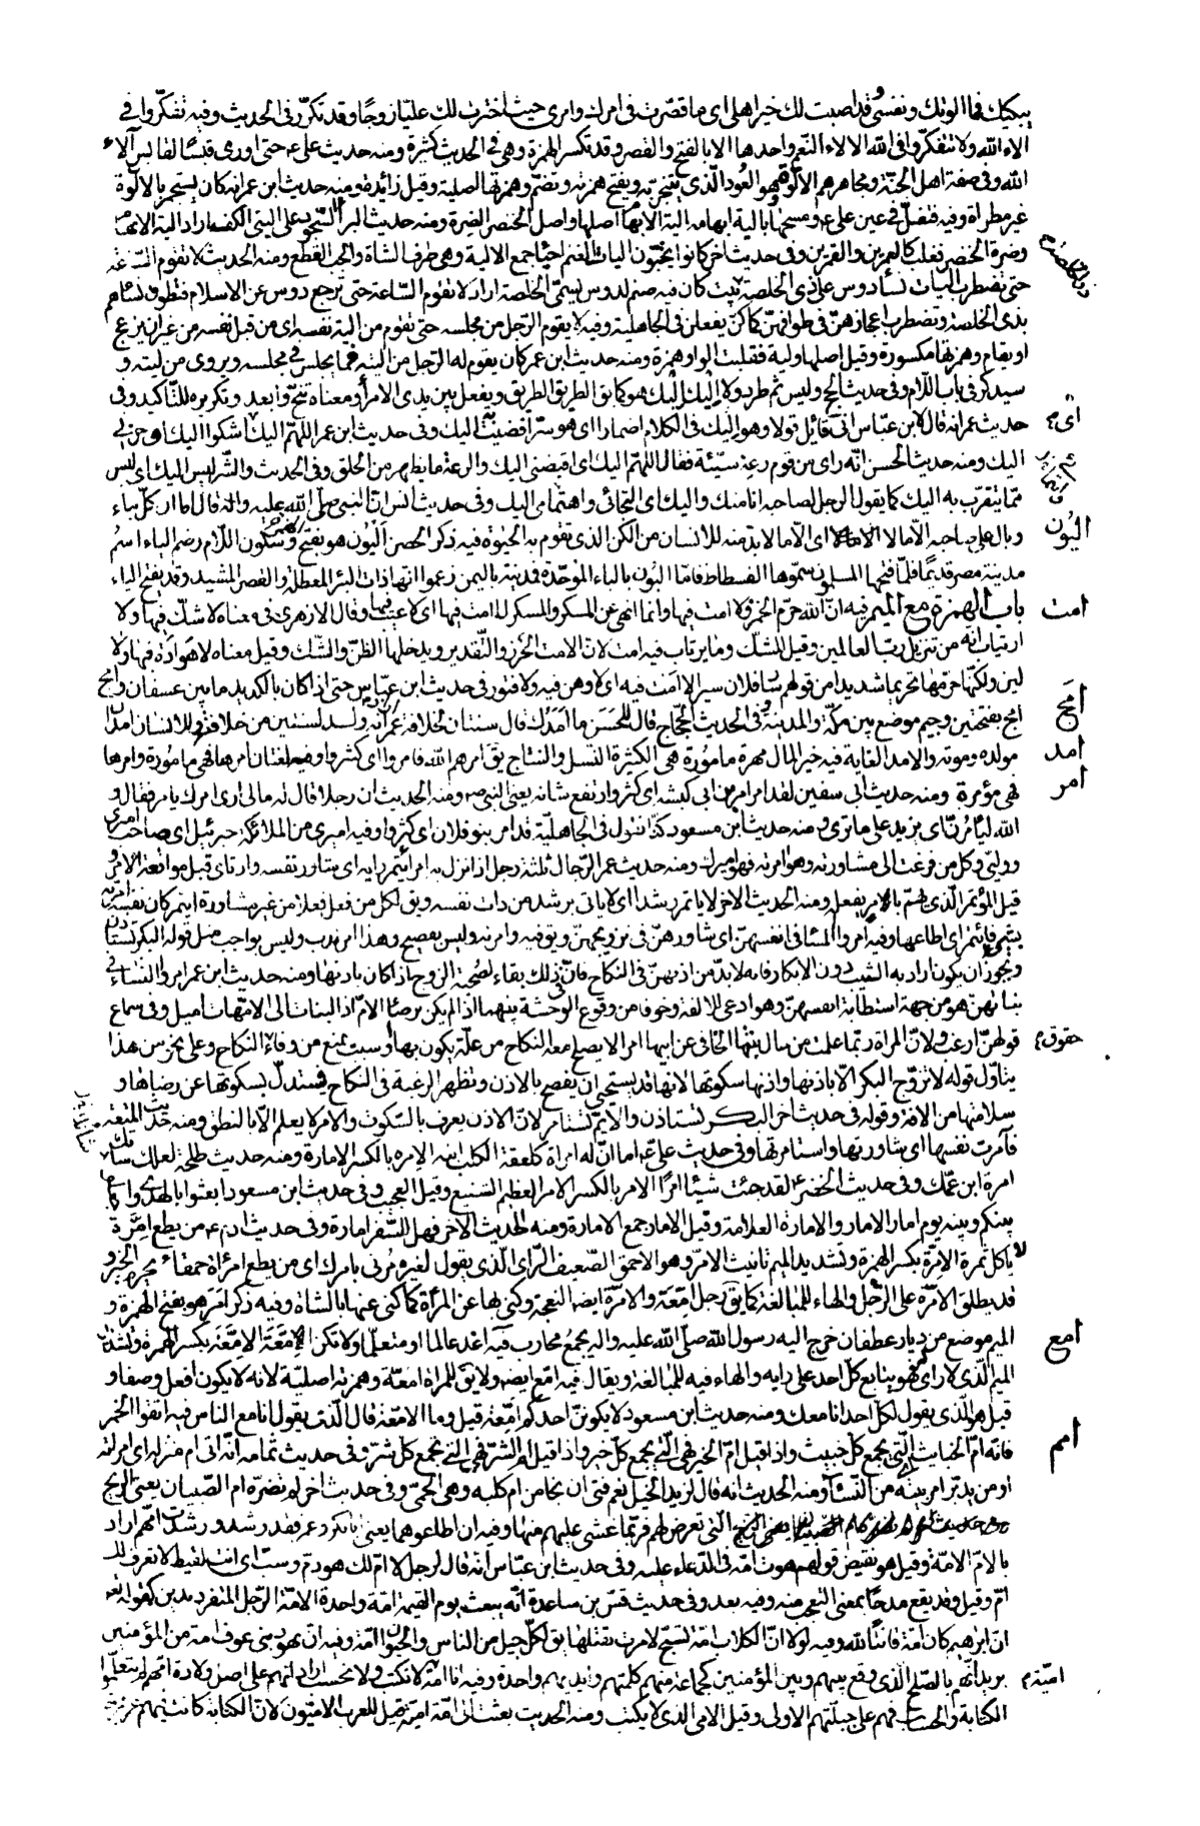 يبكيك فما الوتك ونفسى وقد اصبت لك خير اهلى اى ما قصّرت فى امرك وامرى حيث اخترت لك عليّا زوجًا وقد تكرّر فى الحديث وفيه تفكّروا فى
الاء الله ولا تتفكّروا فى الله الالاء النعم واحدها الا بالفتح والقصر وقد تكسر الهمزة وهى فى الحديث كثيرة ومنه حديث علىّ ع حتى اورى قبسًا لقابس آلاء
الله وفى صفة اهل الجنّة ومجامرهم الالوّة هو العُود الّذى يتبخّر به ويفتح همزته وتضمّ وهمزتها اصلية وقيل زائدة ومنه حديث ابن عمر انه كان يستجمر بالالوّة
غير مطراة وفيه فتفل فى عين علىّ ع ومسحها بالية ابهامه الية الابهام اصلها واصل الخنصر الضرة ومنه حديث البرآء السّجود على اليتى الكف اراد الية الابهام
وضرة الخنصر فغلب كالعمرين والقمرين وفى حديث اخر كانوا يجتبّون اليات الغنم احياء جمع الالية وهى طرف الشاة والجب القطع ومنه الحديث لا تقوم الساعة
حتى تضطرب اليات نسآء دوس على ذى الخلصة بيت كان فيه صنم لدوس يسمّى الخلصة اراد لا تقوم السّاعة حتى ترجع دوس عن الاسلام فتطوف نساؤهم
بذى الخلصة وتضطرب اعجازهنّ فى طوافهنّ كما كنّ يفعلن فى الجاهلية وفيه لا يقوم الرّجل من مجلسه حتى تقوم من الية نفسه اى من قبل نفسه من غير ان يزعج
او يقام وهمزتها مكسورة وقيل اصلها ولية فقلبت الواو همزة ومنه حديث ابن عمر كان يقوم له الرّجل من اليته فما يجلس فى مجلسه ويروى من ليته و
سيذكر فى باب اللّام وفى حديث الحج وليس ثم طرد ولا اليك اليك هو كما يق الطريق الطريق ويفعل بين يدى الامراء ومعناه تنحّ وابعد وتكريره للتّأكيد وفى
اى م
حديث عمر انه قال لابن عبّاس انى قائل قولا وهو اليك فى الكلام اضمار اى هو سرّ افضيت به اليك وفى حديث ابن عمر اللّهم اليك اشكوا اليك او خذنى
اليك ومنه حديث الحسن انّه راى من قوم رعة سيّئة فقال اللّهم اليك اى اقبضنى اليك والرعة ما يظهر من الخلق وفى الحديث والشّر ليس اليك اى ليس
ممّا يتقرّب به اليك كما يقول الرجل لصاحبه انا منك واليك اى التجائى وانتمائى اليك وفى حديث انس ان النبى صلّى الله عليه واله قال اما ان كلّ بناء
اليُون
وبال على صاحبه الّا ما لا الّا ما لا اى الّا ما لا بدّ منه للانسان من الكنّ الذى تقوم به الحيٰوة فيه ذكر الحصن اَلْيون هو بفتح وسكون اللّام وضم الياء اسمُ
مدينة مصر قديمًا فلمّا فتحها المسلمون سمّوها الفسطاط فامّا البُون بالباء الموحّدة فمدينة باليمن زعموا انها ذات البئر المعطلة والقصر المشيد وقد يفتح الباء
امت
باب الهمزة مع الميم فيه انّ الله حرّم الخمر ولا امت فيها وانما انهى عن السكر والمسكر لا امت فيها اى لا عيب فيها وقال الازهرى فى معناه لا شكّ فيها ولا
ارتياب انه من تنزيل ربّ العالمين وقيل للشكّ وما يرتاب فيه امت لانّ الامت الحَزر والتّقدير ويدخلها الظنّ والشّك وقيل معناه لا هوادة فيها ولا
لين ولكنّه حرّمها تحريما شديدا من قولهم سار فلان سيرا لا امت فيه اى لا وهن فيه ولا فتور فى حديث ابن عبّاس حتى اذا كان بالكديد ما بين عسفان وامج
امَج
امج بفتحتين وجيم موضع بين مكّة والمدينة فى الحديث الحجاج قال للحَسَن ما اَمَدُك قال سنتان لخلافة عمر اى انه ولد لسنتين من خلافة وللانسان امدان
امد
مولده وموته والامد الغاية فيه خير المال مهرة مامُورة هى الكثيرة النسل والنتاج يق امرهم الله فامروا اى كثروا وفيه لغتان امرها فهى مامُورة وامرها
امر
فهى مؤمرة ومنه حديث ابى سفين لقد امر امر بن ابى كبشه اى كثر وارتفع شانه يعنى النبى ص ومنه الحديث ان رجلا قال له مالى ارى امرك يامر فقال و
الله ليامُرنّ اى يزيد على ما ترى ومنه حديث ابن مسعود كنّا نقول فى الجاهليّة قد امر بنو فلان اى كثروا وفيه اميرى من الملائكة جبرئيل اى صاحب امرى
ووليّى وكل من فزعت الى مشاورته ومؤامرته فهو اميرك ومنه حديث عمر الرّجال ثلثة رجل اذا نزل به امر ايتمر رايه اى شاور نفسه وارتاى قبل مواقعة الامر و
قيل المؤتمر الّذى يهمّ بالامر يفعله ومنه الحديث الاخر لا ياتمر رشدا اى لا ياتى برشد من ذات نفسه ويق لكل من فعل فعلا من غير مشاورة ايتمر كان نفسه امرته
بشىء فائتمر اى اطاعها وفيه امروا النسآء فى انفسهنّ اى شاورهنّ فى تزويجهنّ ويق فيه وامرته وليس بفصيح وهذا امر ندب وليس بواجب مثل قوله البكر تستاذن
ويجوز ان يكون اراد به الثيب دون الابكار فانه لا بدّ من اذنهنّ فى النكاح فانّ فى ذلك بقاء لصُحبة الزوج اذا كان باذنها ومنه حديث ابن عمر امروا النساء فى
بناتهن هو من جهة استطابة انفسهنّ وهو ادعى للالفة وخوفا من وقوع الوحشة بينهما اذا لم يكن برضا الامّ اذ البنات الى الامّهات اميل وفى سماع
حقوق م
قولهنّ ارغب ولانّ المراة ربّما علمت من حال بنتها الخافى عن ابيها امرا لا يصلح معه النكاح من علّة يكون بها او سبب يمنع من وفاء النكاح وعلى نحو من هذا
يتاوّل قوله لا تزوّج البكر الّا باذنها واذنها سكوتها لانها قد يستحيى ان يفصح بالاذن وتظهر الرغبة فى النكاح فيستدلّ بسكوتها عن رضاها و
سلامتها من الافة وقوله فى حديث اخر البكر تستاذن والايّم تستامر لانّ الاذن يعرف بالسّكوت والامر لا يعلم الّا بالنطق ومنه حديث المتعة
فآمرت نفسها اى شاورتها واستامرتها وفى حديث علىّ ع اما انّ له امراة كلعقة الكلب ابنه الامره بالكسر الامارة ومنه حديث طلحة لعلك ساءتك
امرة ابن عمّك وفى حديث الخضر ع لقد جئت شيئًا امرًا الامر بالكسر الامر العظيم الشنيع وقيل العجب وفى حديث ابن مسعود ابعثوا بالهدى واجعلوا
بينكم وبينه يوم امار الامار والامارة العلامة وقيل الامار جمع الامارة ومنه الحديث الاخر فهل للسّفر امارة وفى حديث ادم ع من يطع اِمَّرة
لا ياكل ثمرة الاِمّرة بكسر الهمزة وتشديد الميم تانيث الامّر وهو الاحمق الضّعيف الرّاى الّذى يقول لغيره مُرنى بامرك اى من يطع امرأة حمقاء يحرم الخير و
قد يطلق الامّرة على الرّجل والهاء للمبالغة كما يق رجل امّعة والامّرة ايضا النعجة وكنى بها عن المرأة كما كنى عنها بالشاة وفيه ذكر اَمَر هو بفتح الهمزة و
امع
الميم موضع من ديار غطفان خرج اليه رسول الله صلّى الله عليه واله يجمعُ محارب فيه اغد عالما او متعلّما ولا تكن اِمَّعَة الاِمَّعَة بكسر الهمزة وتشديد
الميم الّذى لا راى له فهو يتابع كلّ احد على رايه والهاء فيه للمبالغة ويقال فيه امّع ايضا ولا يق للمراة امّعة وهمزته اصليّة لانه لا يكون افعل وصفا و
قيل هو الّذى يقول لكلّ احد انا معك ومنه حديث ابن مسعود لا يكوننّ احدكم امّعة قيل وما الامّعة قال الّذى يقول انا مع الناس فيه اتقوا الخمر
امم
فانها امّ الخبايث الّتى يجمع كلّ خبيث واذا قيل امّ الخير فهى الّتى يجمع كلّ خير واذا قيل امّ الشرّ فهى التى تجمع كلّ شرّ وفى حديث ثمامه انّه اتى ام منزله اى امراته
او من يدبّر امر بيته من النّسآء ومنه الحديث انه قال لزيد الخيل نعم فتى ان نجا من ام كلبه وهى الحمّى وفى حديث اخر لم تضرّه ام الصّبيان يعنى الريح
التى تعرض لهم فربّما غشى عليهم منها وفيه ان اطاعوهما يعنى ابا بكر وعمر فقد رشدوا ورشدت امّهم اراد
بالامّ الامّة وقيل هو نقيض قولهم هوت امّه فى الدّعاء عليه وفى حديث ابن عبّاس انه قال لرجل لا امّ لك هو ذم وسبّ اى انت لقيط لا تعرف لك
امّ وقيل وقد يقع مدحًا بمعنى التعجب منه وفيه بعد وفى حديث قسّ بن ساعدة انّه يبعث يوم القيمة امّة واحدة الامّة الرّجل المنفرد بدين كقوله تع
انّ ابرٰهيم كان امّة قانتًا لله وفيه لولا انّ الكلاب امّة تسبّح لامرت بقتلها يق لكلّ جيل من الناس والحيوان امّة وفيه ان يهود بنى عوف امّة من المؤمنين
امّيّة م
يريد انّهم بالصّلح الّذى وقع بينهم وبين المؤمنين كجماعة منهم كلمتهم وايديهم واحدة وفيه انّا امّة لا نكتب ولا نحسب اراد انّهم على اصل ولادة امّهم لم يتعلّموا
الكتابة والحساب فهم على جبلّتهم الاولى وقيل الامّى الذى لا يكتب ومنه الحديث بعثت الى امّة امّيّة قيل للعرب الامّيّون لانّ الكتابة كانت فيهم عزيزة